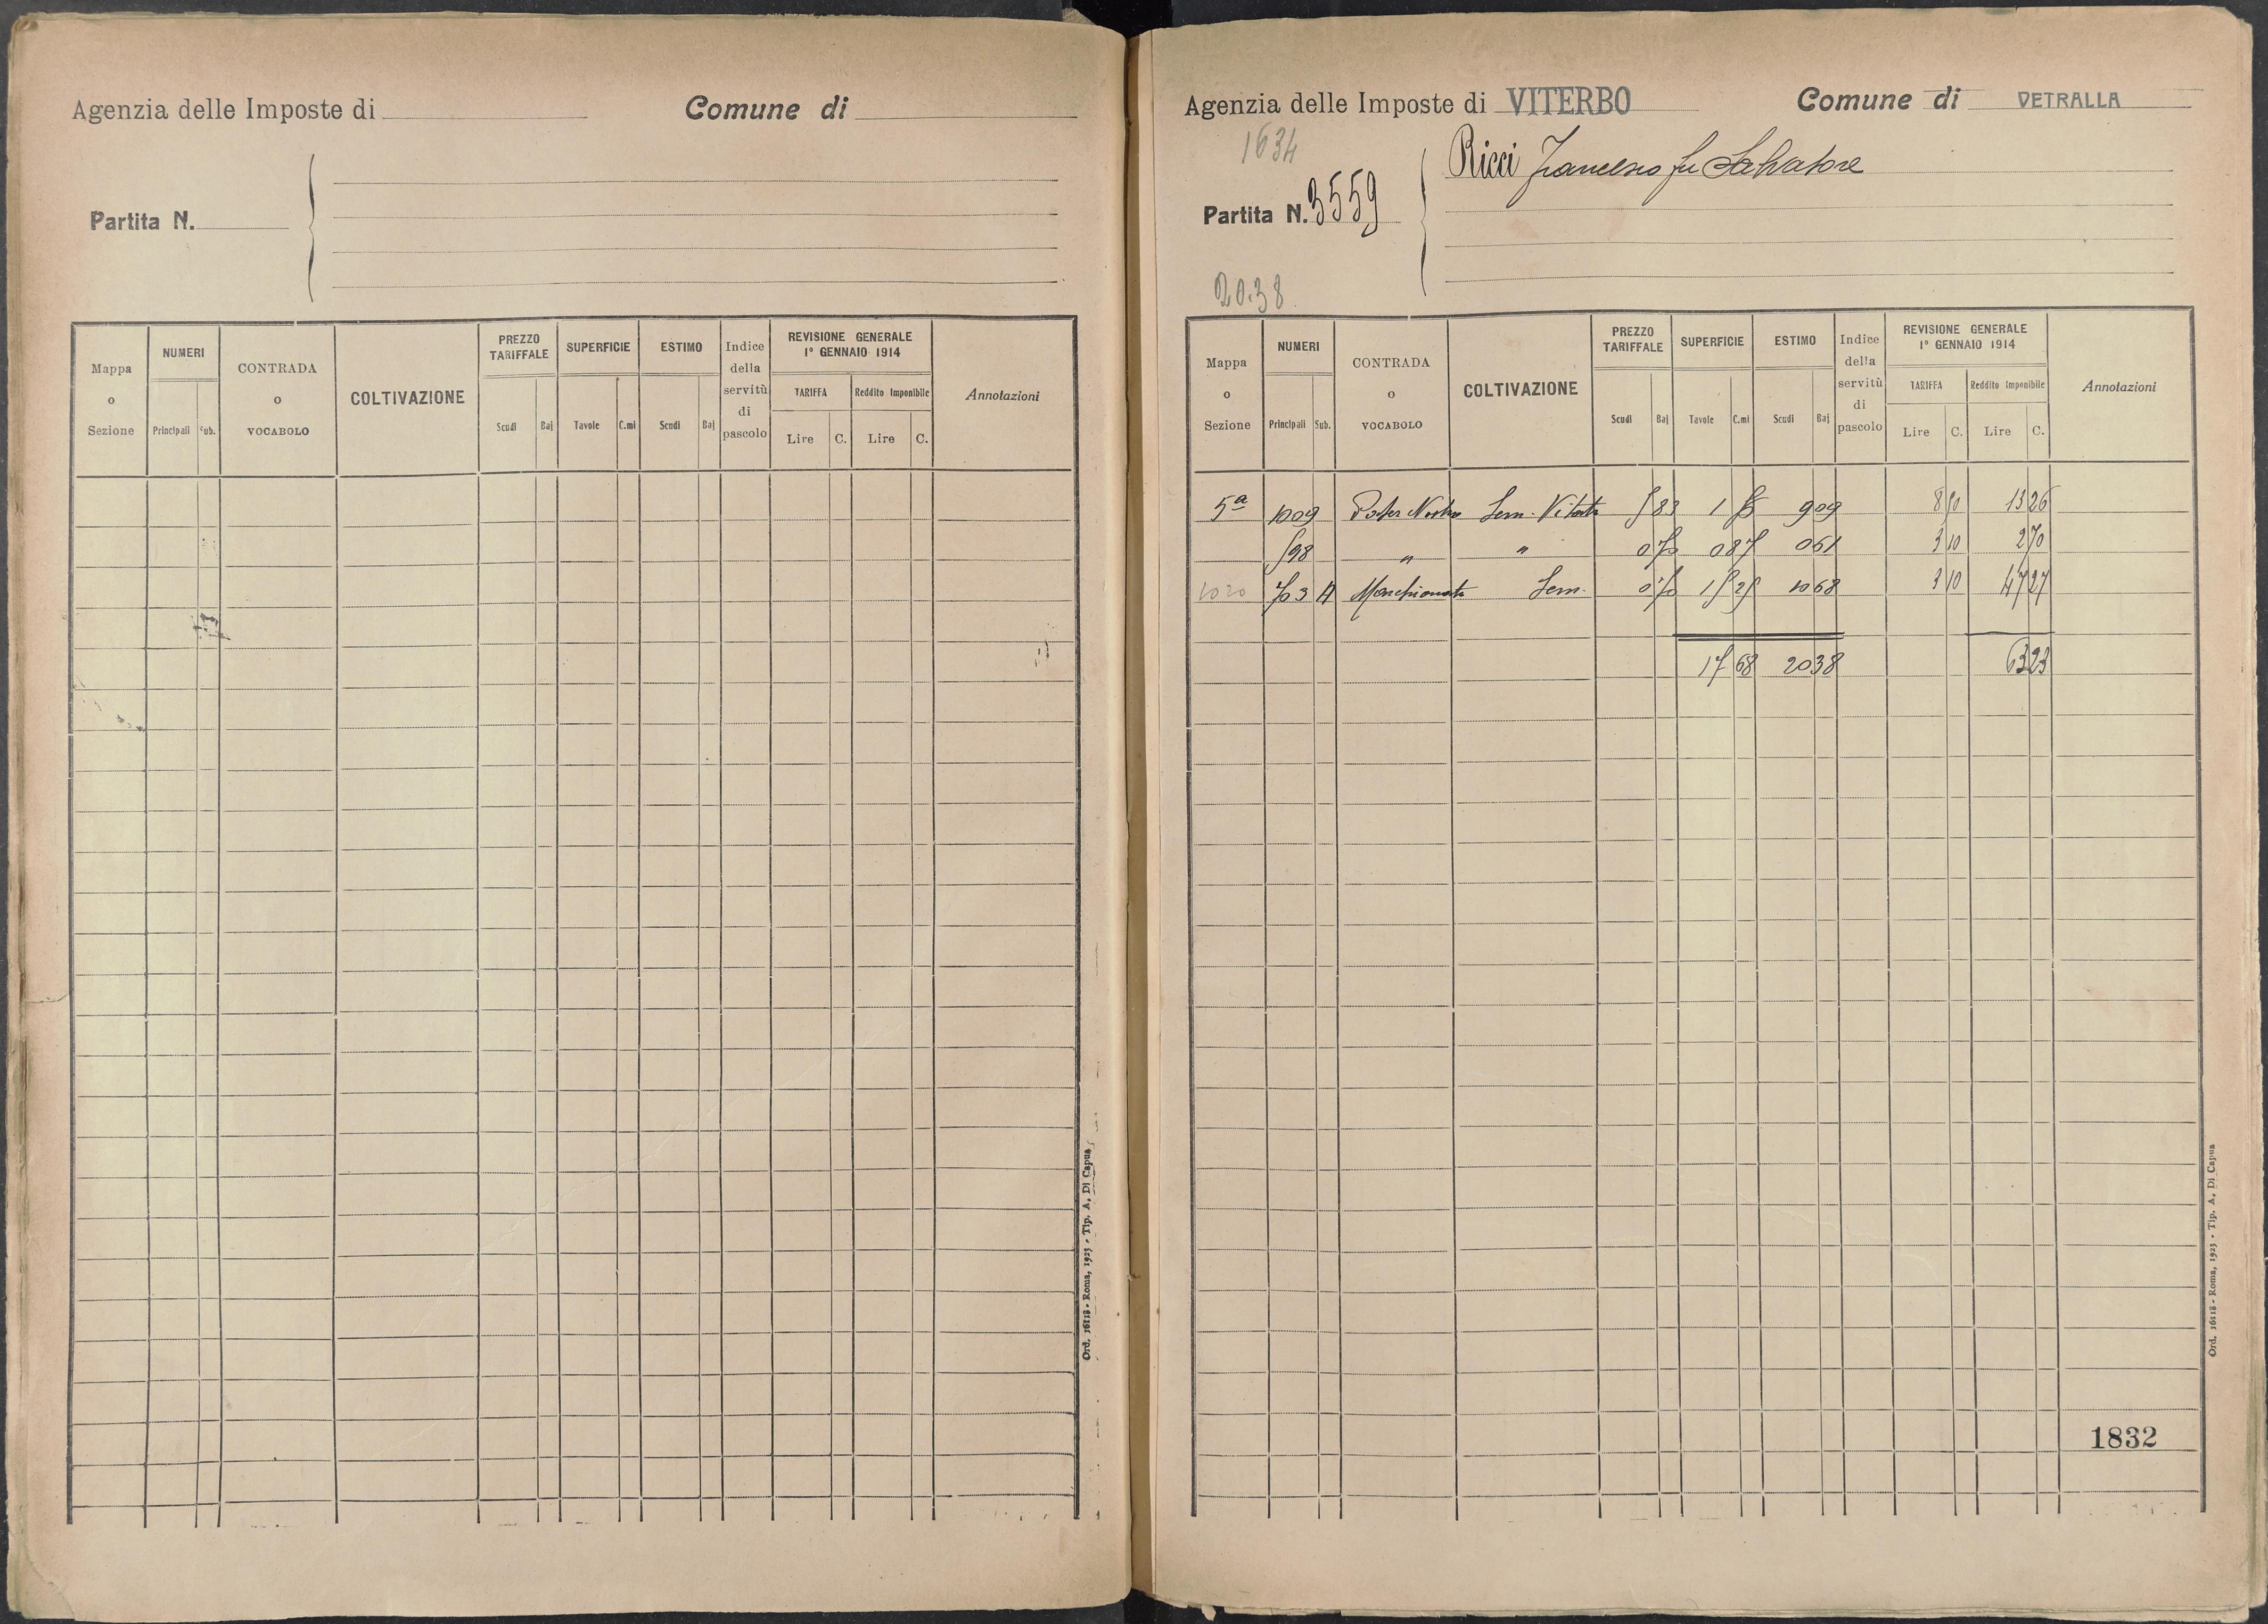 Agenzia delle Imposte di
Comune di
Partita N.
Mappa o Sezione
NUMERI
Principali Sub.
CONTRADA o VOCABOLO
COLTIVAZIONE
PREZZO TARIFFALE
Scudi Baj
SUPERFICIE
Tavole C.mi
ESTIMO
Scudi Baj
Indice della servitù di pascolo
REVISIONE GENERALE
1° GENNAIO 1914
TARIFFA Reddito Imponibile
Lire C. Lire C.
Annotazioni
Ord. 16118 - Roma, 1923 - Tip. A. Di Capua
Agenzia delle Imposte di VITERBO
Comune di VETRALLA
1634
Ricci Francesco fu Salvatore
Partita N. 3559
20.38
Mappa o Sezione
NUMERI
Principali Sub.
CONTRADA o VOCABOLO
COLTIVAZIONE
PREZZO TARIFFALE
Scudi Baj
SUPERFICIE
Tavole C.mi
ESTIMO
Scudi Baj
Indice della servitù di pascolo
REVISIONE GENERALE
1° GENNAIO 1914
TARIFFA Reddito Imponibile
Lire C. Lire C.
Annotazioni
5ª 1009 Pater Noster Sem. Vitato 5 83 1 56 9 09 8 50 13 26
598 " " 0 70 0 87 0 61 3 10 2 70
1020 703 A Marchionato Sem. 0 70 15 25 10 68 3 10 47 27
17 68 20 38 63 23
1832
Ord. 16118 - Roma, 1923 - Tip. A. Di Capua